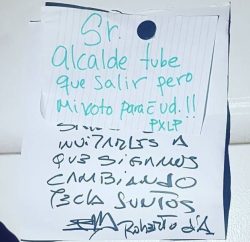 Sr.
Alcalde tube
que salir pero
mi voto para Ud.!!
PXLP
INVITARLES A
QUE SIGAMOS
CAMBIANDO
TECLA JUNTOS
Roberto d'A